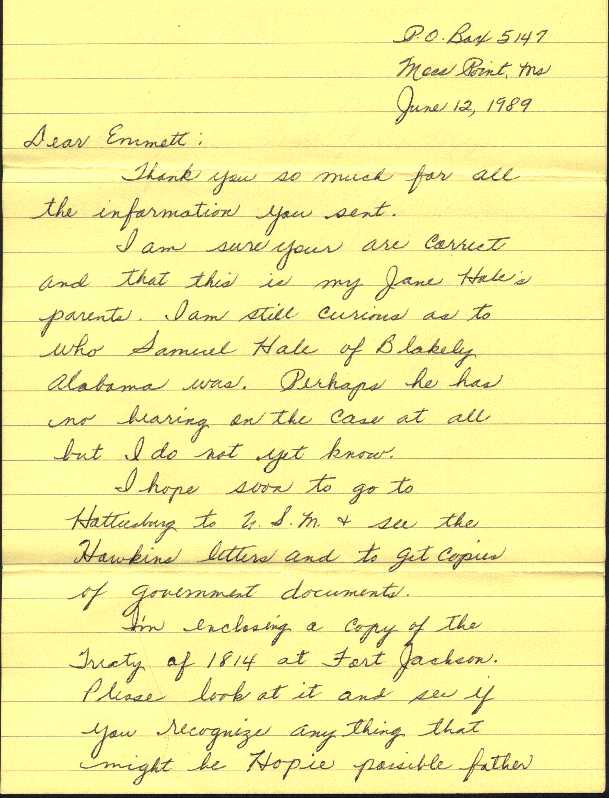 P.O. Box 5147
Moss Point, Ms
June 12, 1989
Dear Emmett:
Thank you so much for all
the information you sent.
I am sure your are correct
and that this is my Jane Hale's
parents. I am still curious as to
who Samuel Hale of Blakely
Alabama was. Perhaps he has
no bearing on the case at all
but I do not yet know.
I hope soon to go to
Hattiesburg to U.S.M. & see the
Hawkins letters and to get copies
of government documents.
I'm enclosing a copy of the
Treaty of 1814 at Fort Jackson.
Please look at it and see if
you recognize any thing that
might be Hopie possible father